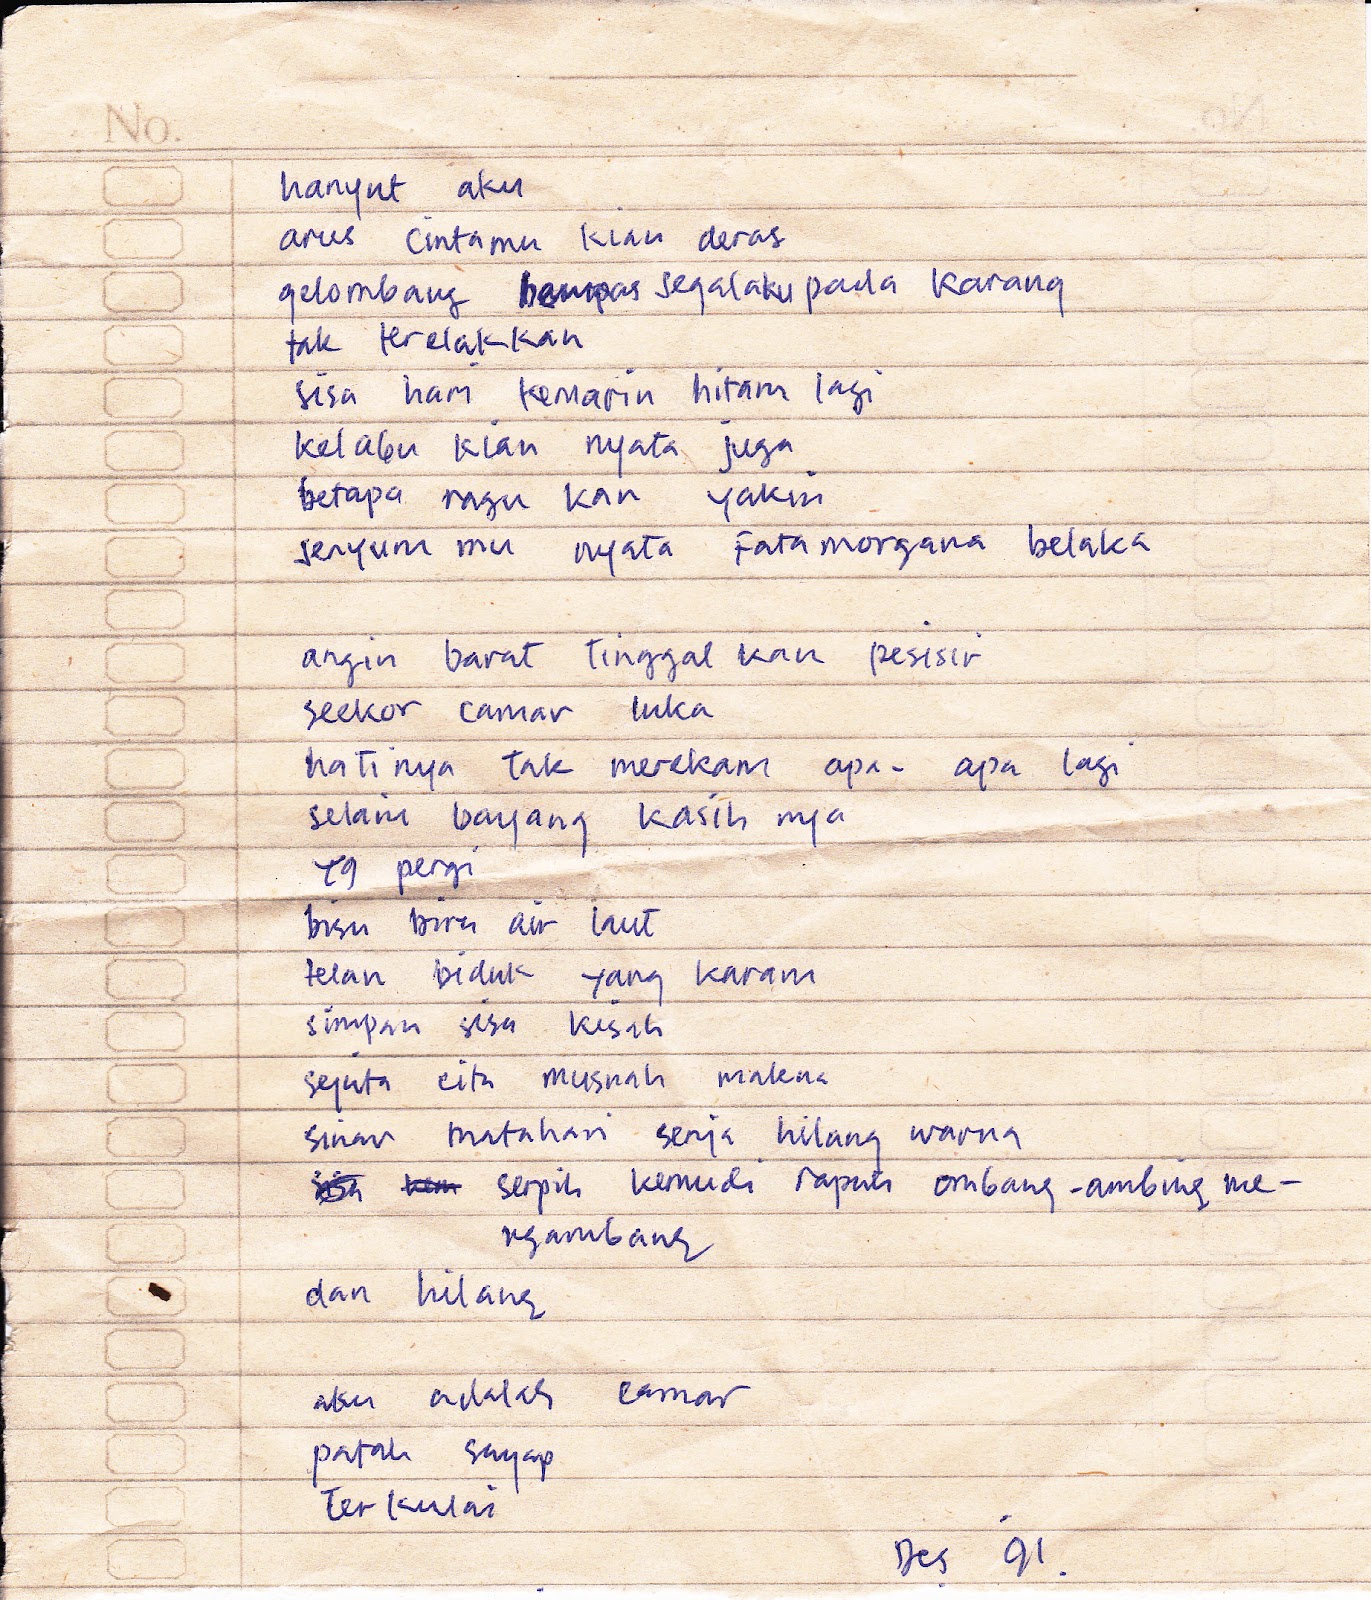 No.
hanyut aku
arus cintamu kian deras
gelombang hempas segalaku pada karang
tak terelakkan
sisa hari kemarin hitam lagi
kelabu kian nyata juga
betapa ragu kan yakin
senyum mu nyata fatamorgana belaka
angin barat tinggalkan pesisir
seekor camar luka
hatinya tak merekam apa-apa lagi
selain bayang kasihnya
yg pergi
bisu biru air laut
telan biduk yang karam
simpan sisa kisah
sejuta cita musnah makna
sinar matahari senja hilang warna
sisa kem serpih kemudi rapuh ombang-ambing me-
ngambang
dan hilang
aku adalah camar
patah sayap
terkulai
Des '91.